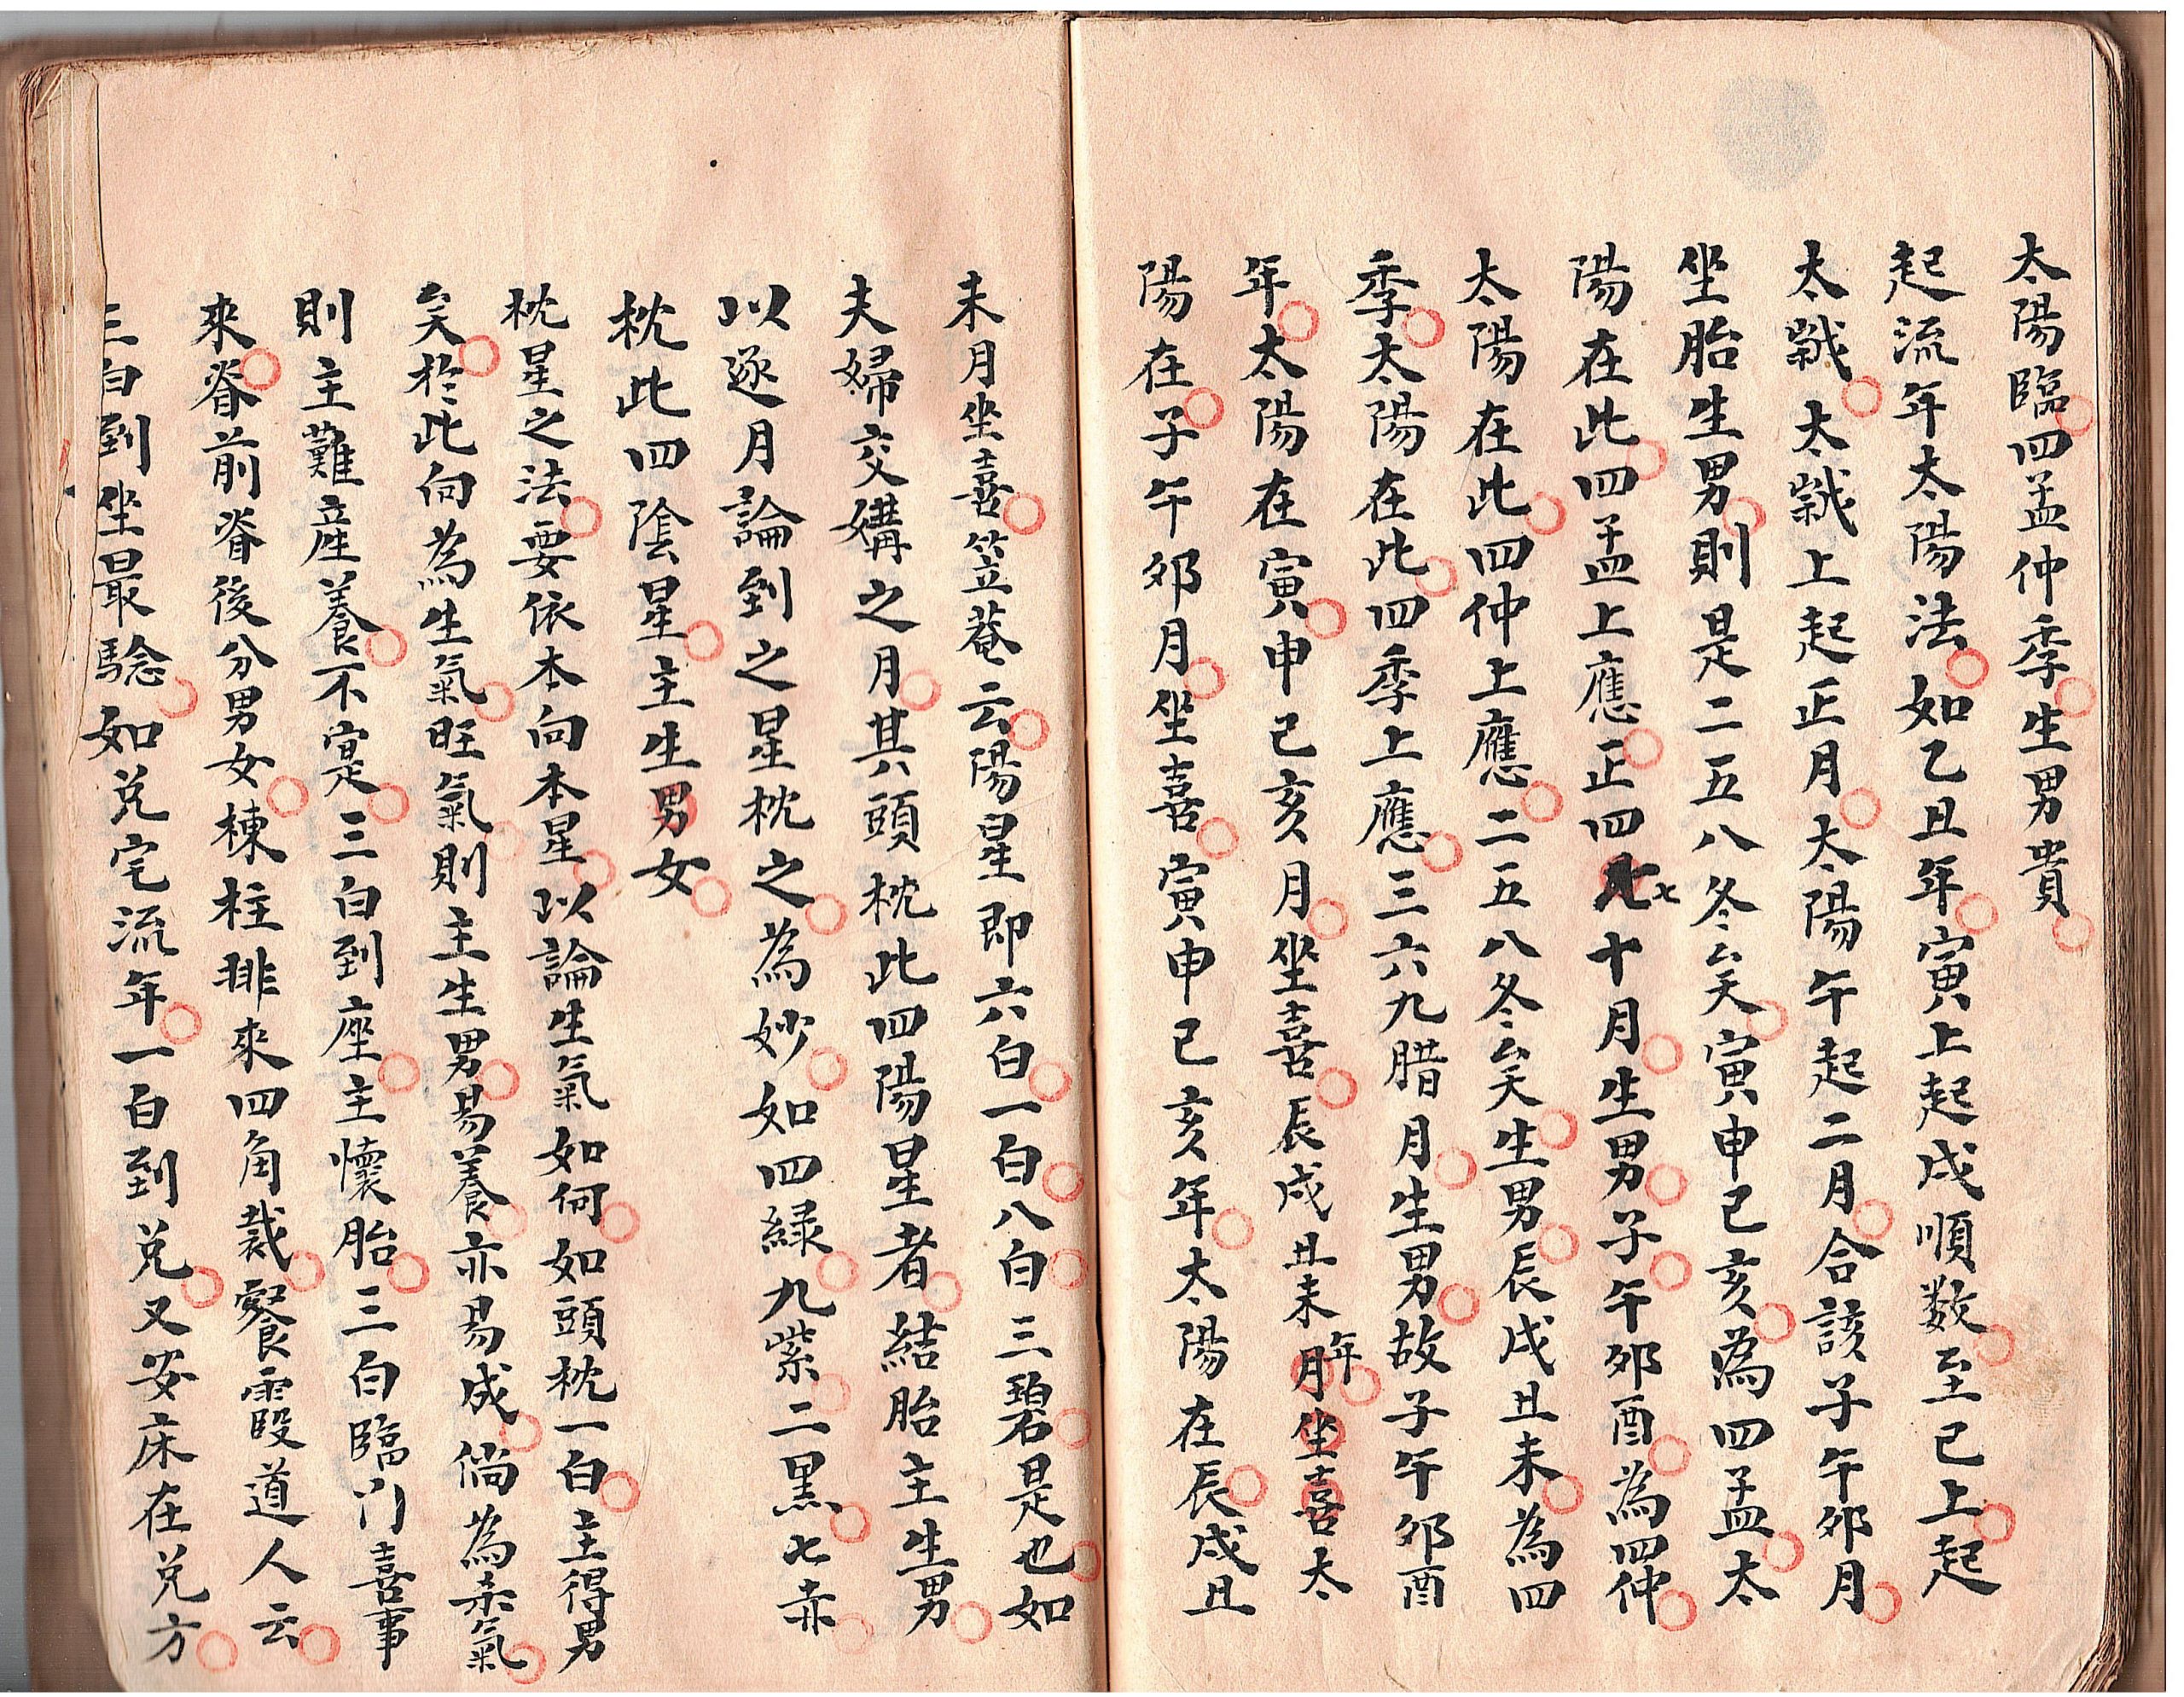 太陽臨四孟仲季生男貴
起流年太陽法如乙丑年寅上起戌順数至已上起
太歲太歲上起正月太陽午起二月合該子午卯月
坐胎生男則是二五八冬矣寅申已亥為四孟太
陽在此四孟上應正四七十月生男子午卯酉為四仲
太陽在此四仲上應二五八冬矣生男辰戌丑未為四
季太陽在此四季上應三六九腊月生男故子午卯酉
年太陽在寅申已亥月坐喜辰戌丑未年太
陽在子午卯月坐喜寅申已亥年太陽在辰戌丑
未月坐喜笠菴云陽星即六白一白八白三碧是也如
夫婦交媾之月其頭枕此四陽星者結胎主生男
以逐月論到之星枕之為妙如四緑九紫二黑七赤
枕此四陰星主生女
枕星之法要依本向本星以論生氣如何如頭枕一白主得男
矣於此向為生氣旺氣則主生男易養亦易成倘為杀氣
則主難產養不寔三白到座主懷胎三白臨门喜事
來眷前眷後分男女棟柱排來四角裁餐霞道人云
三白到坐最騐如兑宅流年一白到兑又安床在兑方